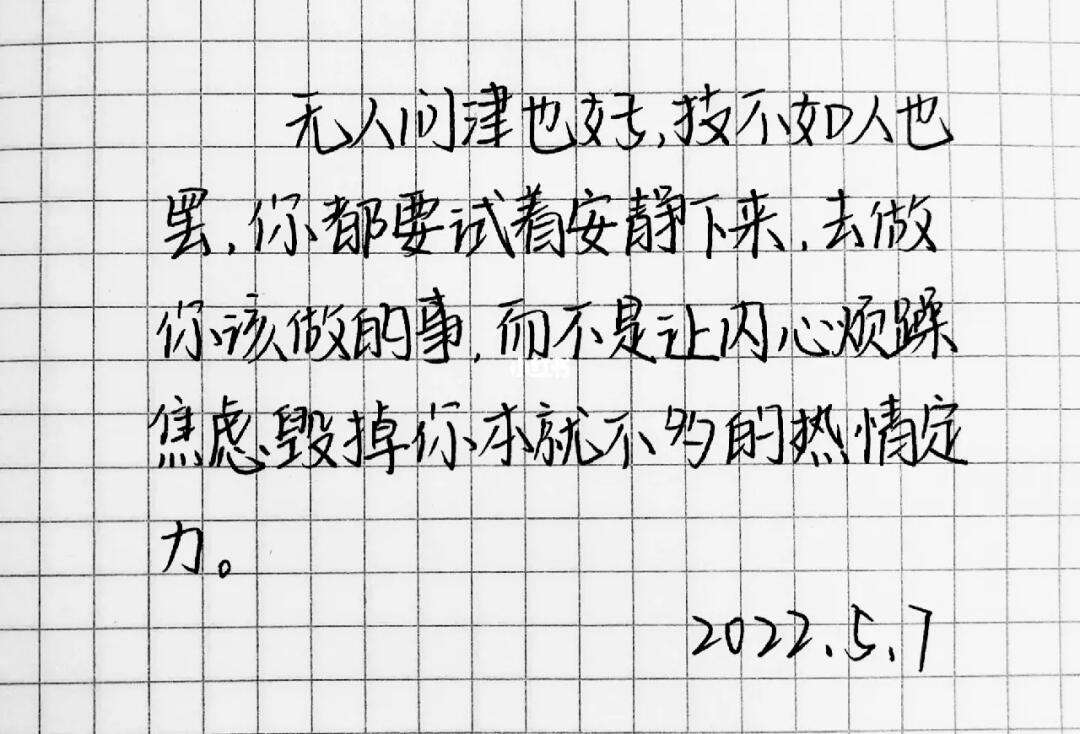 无人问津也好,技不如人也
罢,你都要试着安静下来,去做
你该做的事,而不是让内心烦躁
焦虑毁掉你本就不多的热情定
力。
2022.5.7